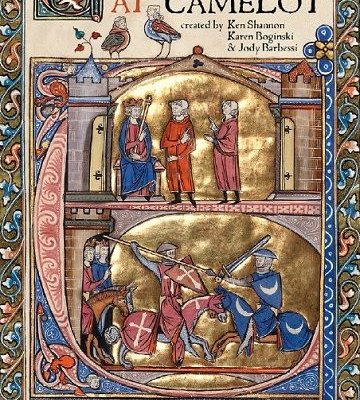 AT CAMELOT
created by Ken Shannon
Karen Boginski
& Jody Barbessi